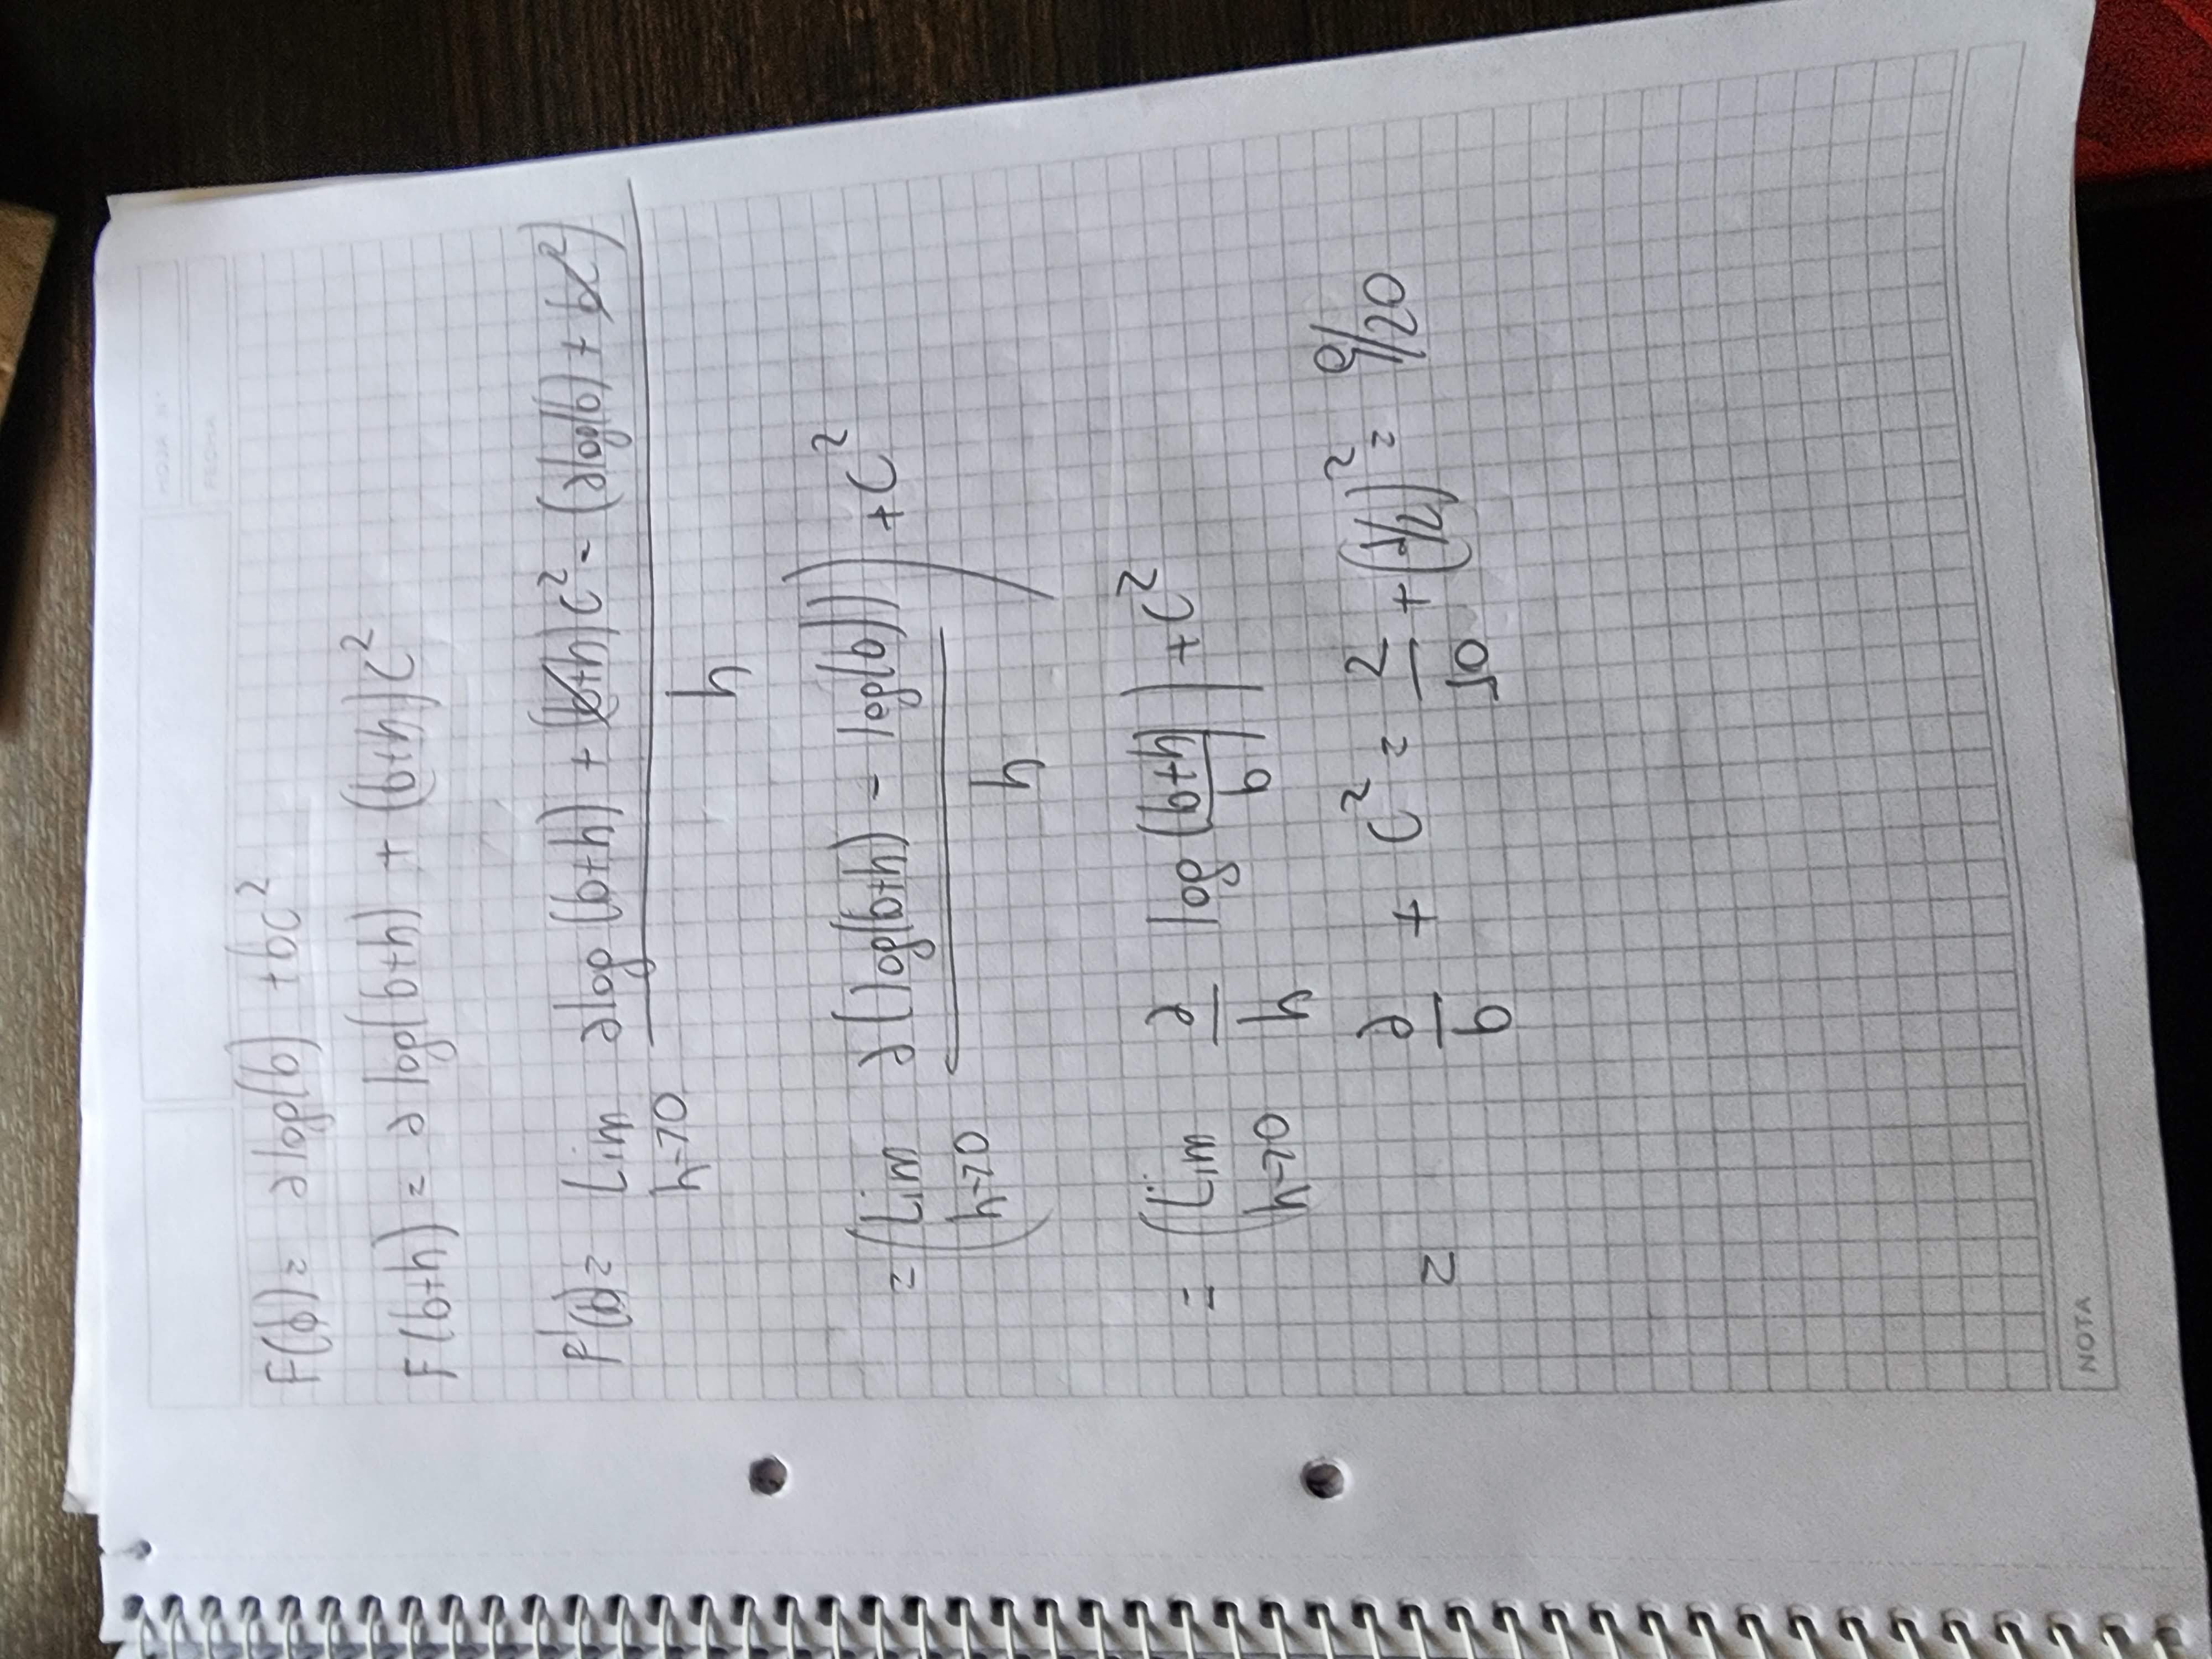 HOJA N°
FECHA
F(b) = a log(b) + bc²
F(b+h) = a log(b+h) + (b+h)c²
F'(b) = Lim h→0 (a log(b+h) + (b+h)c² - (a log(b) + bc²)) / h
= (Lim h→0 a(log(b+h) - log(b)) / h) + c²
= (Lim h→0 a/h log((b+h)/b)) + c²
= a/b + c² = 2/10 + (1/2)² = 9/20
NOTA